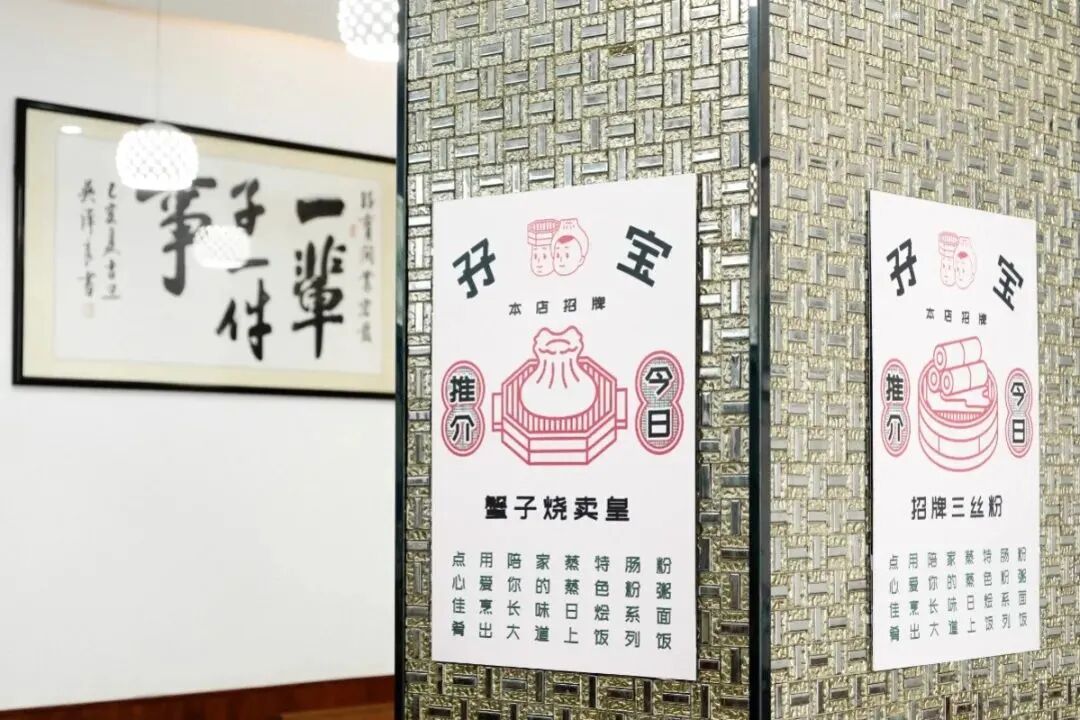 一輩
子一件
事
孖宝
本店招牌
今日
推介
蟹子烧卖皇
点心佳肴
用爱烹出
陪你长大
家的味道
蒸蒸日上
特色烩饭
肠粉系列
粉粥面饭
孖宝
本店招牌
今日
推介
招牌三丝粉
点心佳肴
用爱烹出
陪你长大
家的味道
蒸蒸日上
特色烩饭
肠粉系列
粉粥面饭